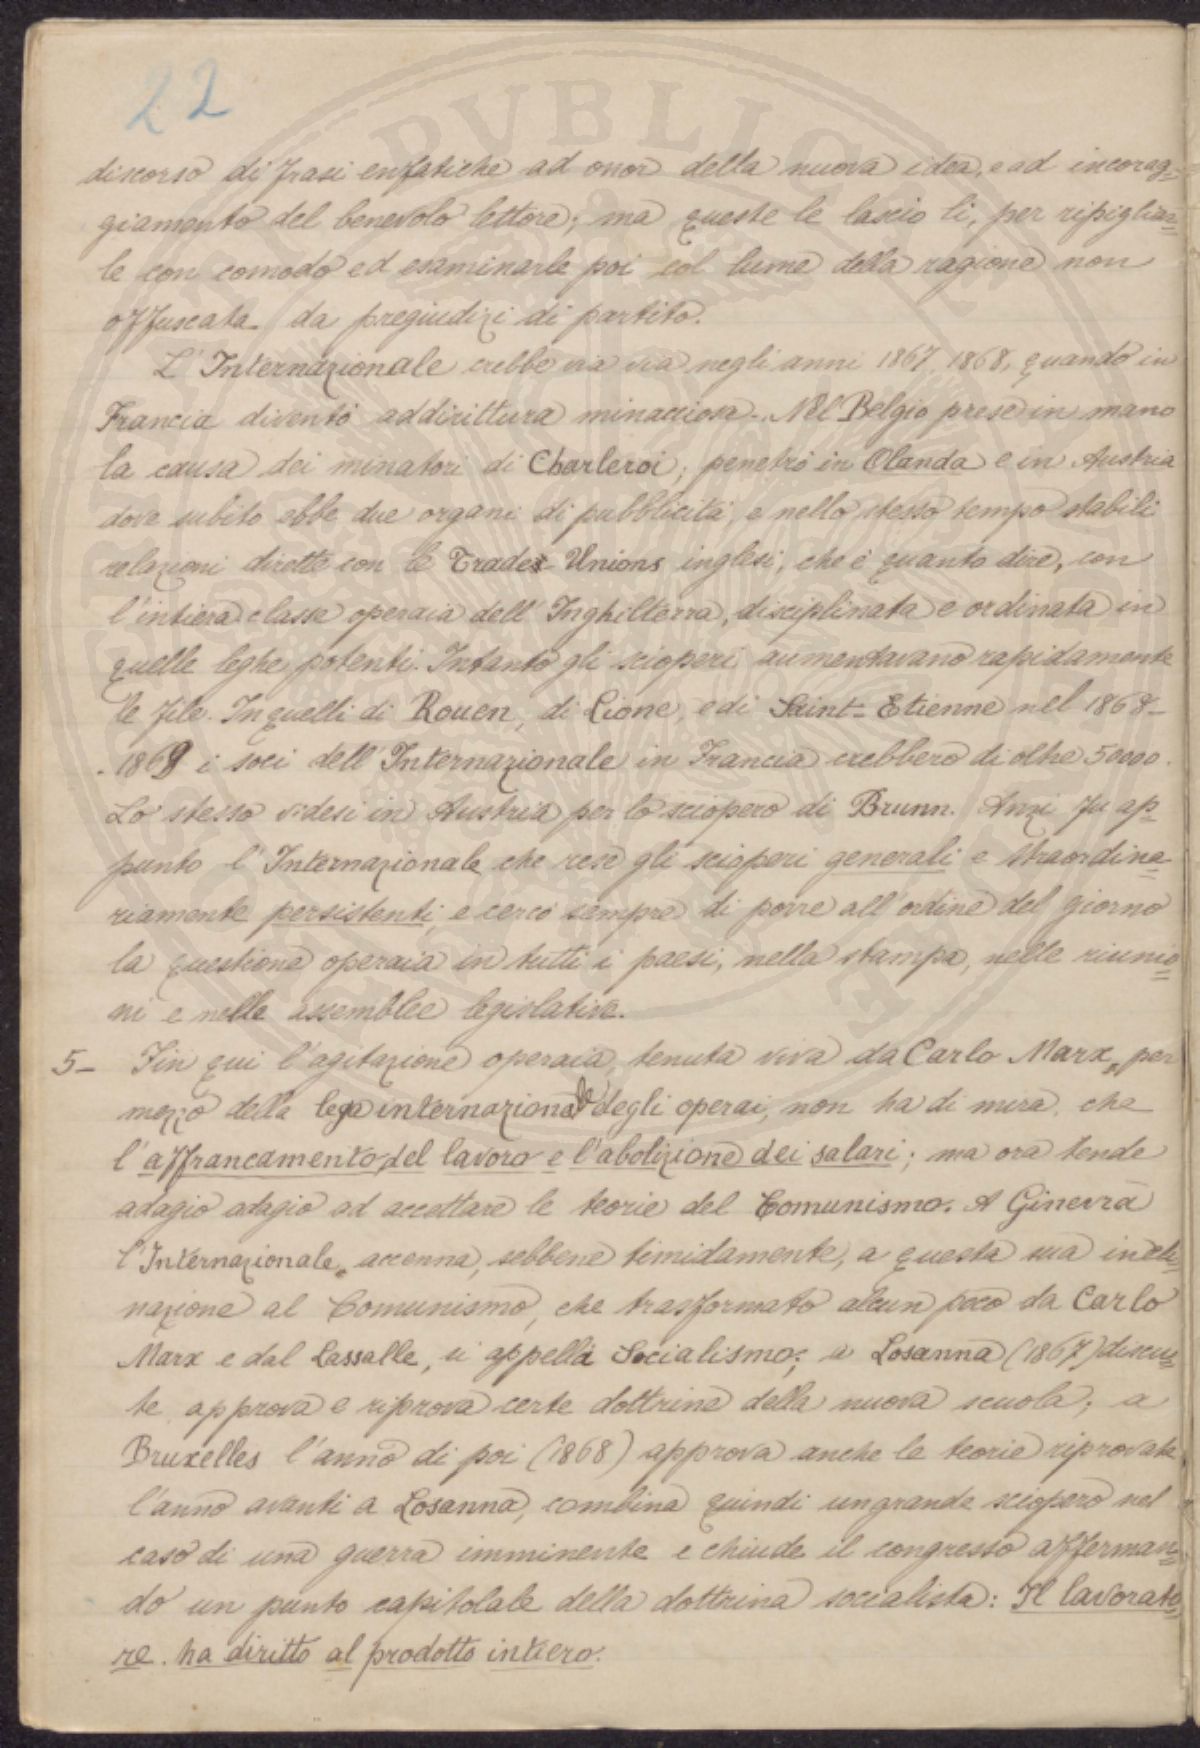 22
discorso di frasi enfatiche ad onor della nuova idea, e ad incorag=
giamento del benevolo lettore; ma queste le lascio lì, per ripigliar=
le con comodo ed esaminarle poi col lume della ragione non
offuscata da pregiudizi di partito.
L'Internazionale crebbe via via negli anni 1867, 1868, quando in
Francia diventò addirittura minacciosa. Nel Belgio prese in mano
la causa dei minatori di Charleroi; penetrò in Olanda e in Austria
dove subito ebbe due organi di pubblicità, e nello stesso tempo stabilì
relazioni dirette con le Trades Unions inglesi, che è quanto dire, con
l'intiera classe operaia dell'Inghilterra, disciplinata e ordinata in
quelle leghe potenti. Intanto gli scioperi aumentavano rapidamente
le file. In quelli di Rouen, di Lione, e di Saint-Etienne nel 1868-
-1869 i soci dell'Internazionale in Francia crebbero di oltre 50000.
Lo stesso videsi in Austria per lo sciopero di Brunn. Anzi fu ap=
punto l'Internazionale che rese gli scioperi generali e straordina=
riamente persistenti, e cercò sempre di porre all'ordine del giorno
la questione operaia in tutti i paesi, nella stampa, nelle riunio=
ni e nelle assemblee legislative.
5- Fin qui l'agitazione operaia, tenuta viva da Carlo Marx, per
mezzo della lega internazionale degli operai, non ha di mira, che
l'affrancamento del lavoro e l'abolizione dei salari; ma ora tende
adagio adagio ad accettare le teorie del Comunismo. A Ginevra
l'Internazionale accenna, sebbene timidamente, a questa sua incli=
nazione al Comunismo, che trasformato alcun poco da Carlo
Marx e dal Lassalle, si appella Socialismo; a Losanna (1867) discu=
te, approva e riprova certe dottrine della nuova scuola; a
Bruxelles l'anno di poi (1868) approva anche le teorie riprovate
l'anno avanti a Losanna, combina quindi un grande sciopero nel
caso di una guerra imminente e chiude il congresso afferman=
do un punto capitolale della dottrina socialista: Il lavorato=
re ha diritto al prodotto intiero.